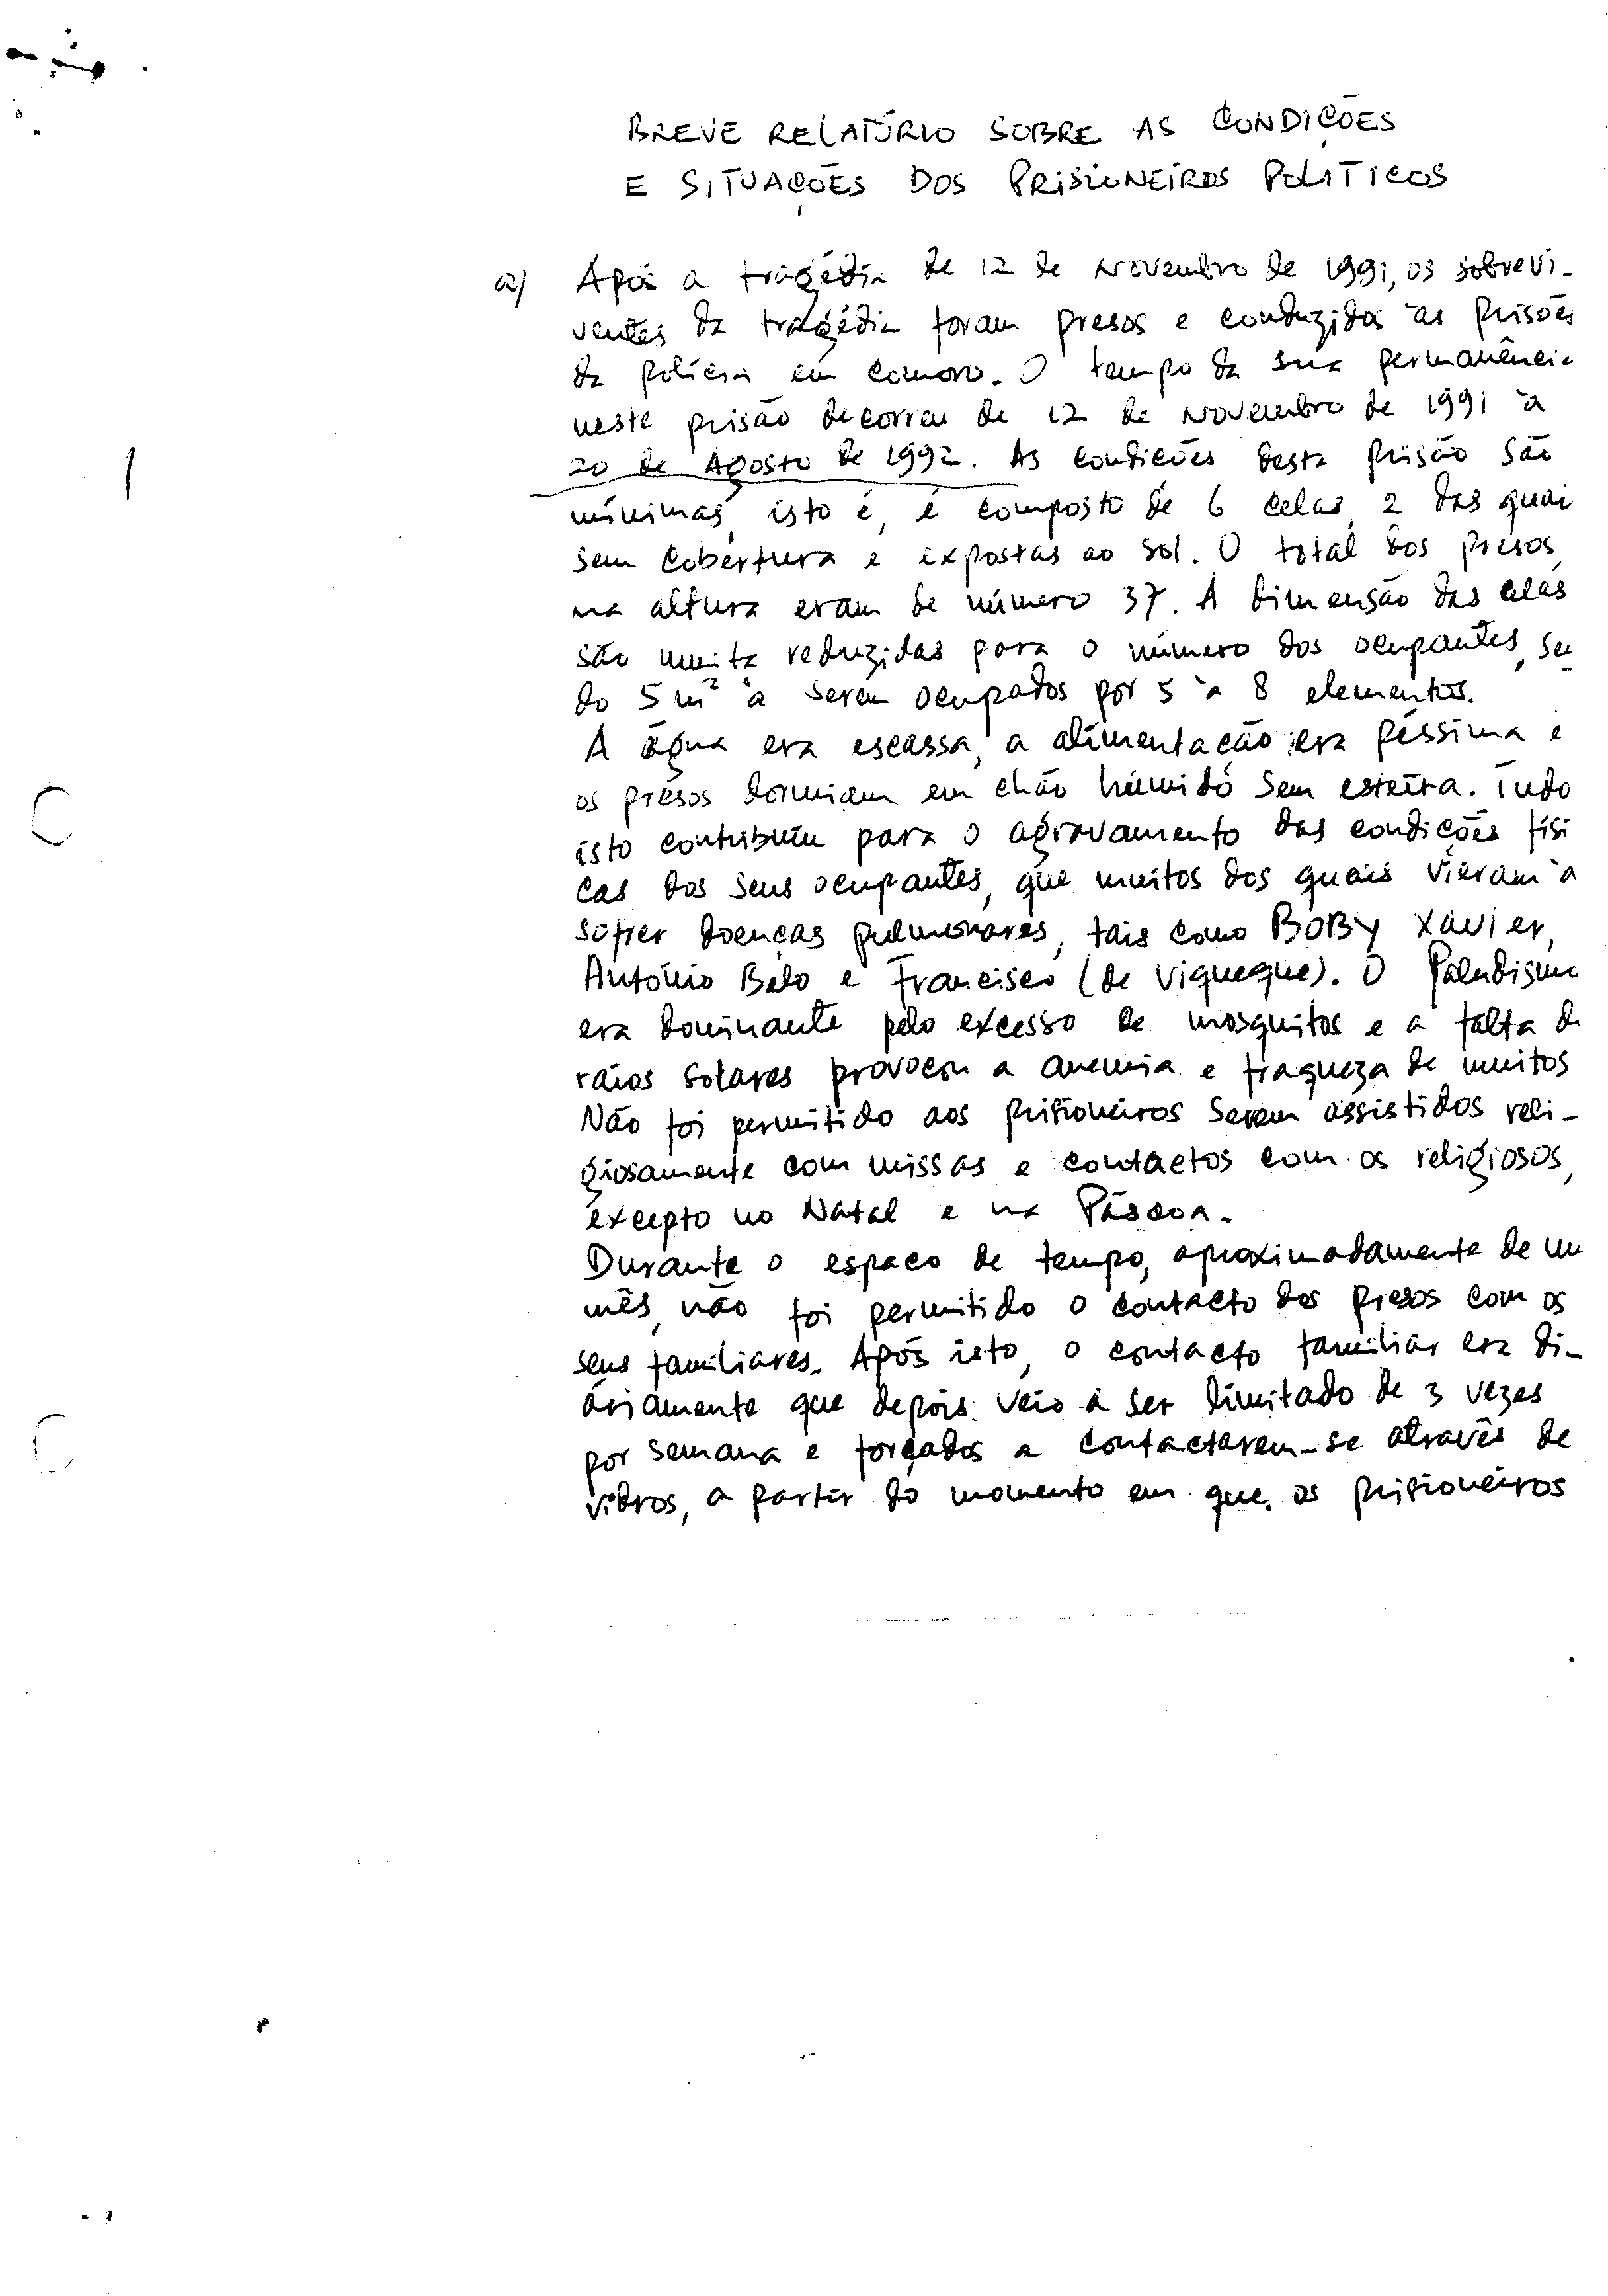 BREVE RELATÓRIO SOBRE AS CONDIÇÕES
E SITUAÇÕES DOS PRISIONEIROS POLITICOS
a) Após a tragédia de 12 de Novembro de 1991, os sobrevi-
ventes da tragédia foram presos e conduzidos às prisões
da policia em comoro. O tempo da sua permanênci
neste prisão decorreu de 12 de Novembro de 1991 à
20 de Agosto de 1992. As condições desta prisão são
mínimas, isto é, é composto de 6 celas, 2 das quai
sem cobertura e expostas ao sol. O total dos presos,
na altura eram de número 37. A dimensão das celas
são muita reduzidas para o número dos ocupantes, sen
do 5 m² à serem ocupados por 5 à 8 elementos.
A água era escassa, a alimentação era péssima e
os presos dormiam em chão húmido sem esteira. Tudo
isto contribuiu para o agravamento das condições físi
cas dos seus ocupantes, que muitos dos quais vieram à
sofrer doenças pulmonares, tais como BOBY Xavier,
António Belo e Francisco (de Viqueque). O Paludismo
era dominante pelo excesso de mosquitos e a falta d
raios solares provocou a anemia e fraqueza de muitos
Não foi permitido aos prisioneiros serem assistidos reli-
giosamente com missas e contactos com os religiosos,
excepto no Natal e na Páscoa.
Durante o espaco de tempo, aproximadamente de um
mês, não foi permitido o contacto dos presos com os
seus familiares. Após isto, o contacto familiar era di-
áriamente que depois veio à ser limitado de 3 vezes
por semana e forçados a contactarem-se através de
vidros, a partir do momento em que os prisioneiros